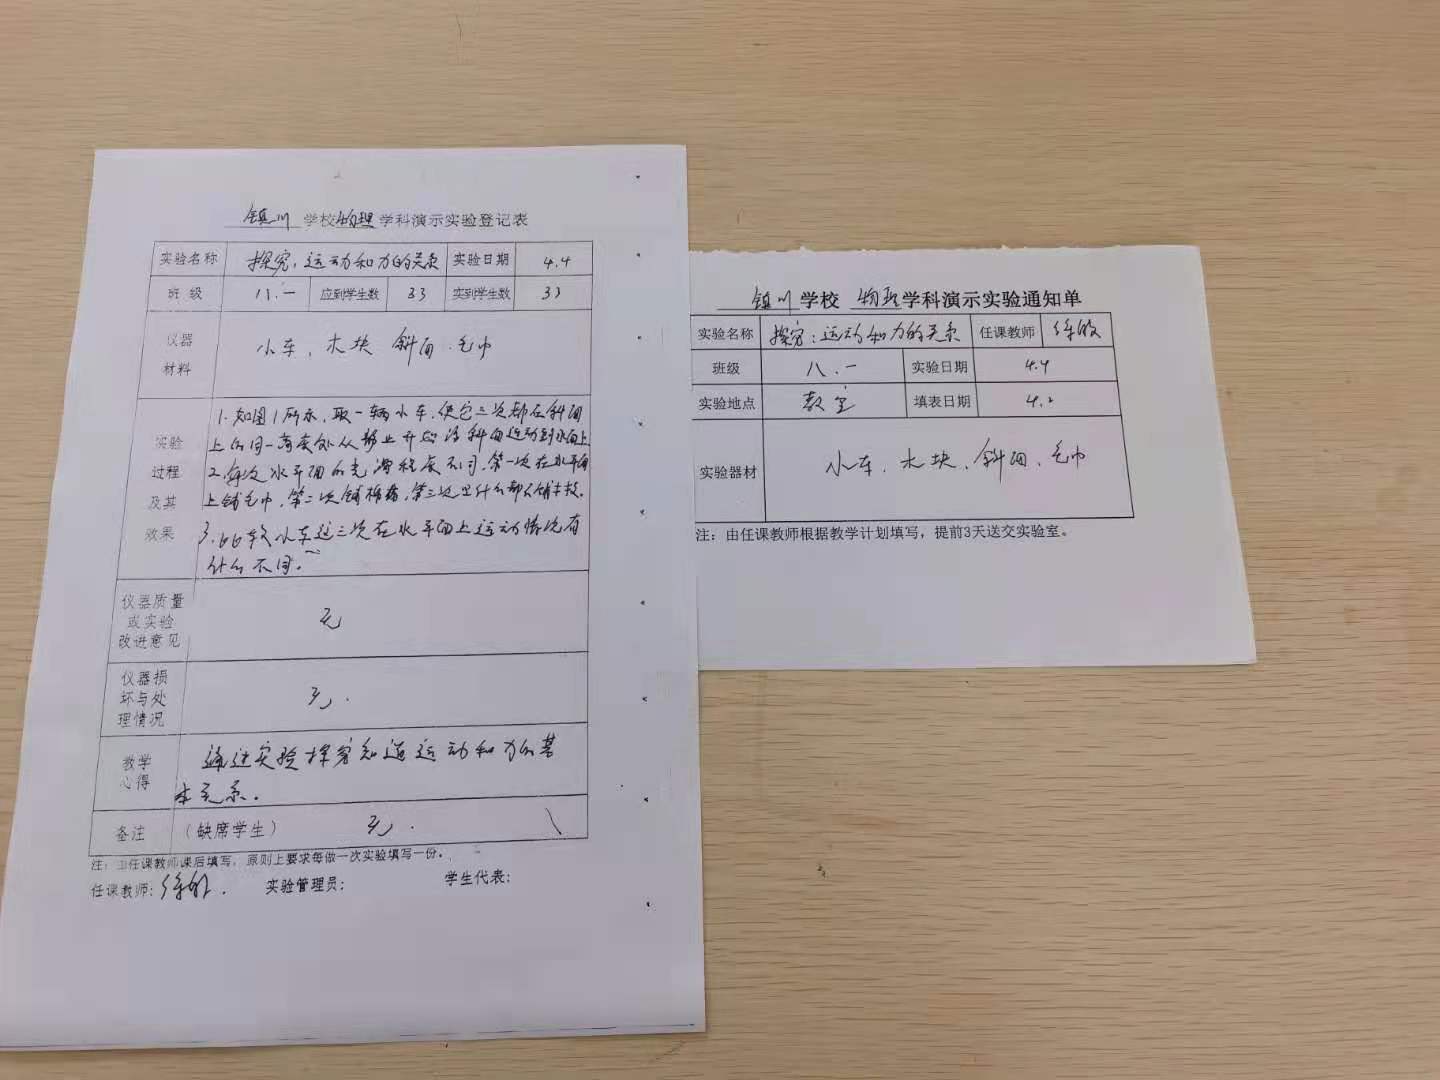 镇川 学校 物理 学科演示实验登记表
实验名称 探究:运动和力的关系 实验日期 4.4
班 级 八.一 应到学生数 33 实到学生数 33
仪器材料 小车、木块 斜面 毛巾
实验过程及其效果
1.如图1所示,取一辆小车,使它三次都在斜面
上的同一高度处从静止开始沿斜面运动到水面上
2.每次水平面的光滑程度不同,第一次在水平面
上铺毛巾,第二次铺棉布,第三次什么都不铺木板.
3.比较小车这三次在水平面上运动情况有
什么不同.
仪器质量或实验改进意见 无
仪器损坏与处理情况 无.
教学心得 通过实验探究知道运动和力的基
本关系.
备注 (缺席学生) 无.
注:由任课教师课后填写,原则上要求每做一次实验填写一份。
任课教师: 实验管理员: 学生代表:
镇川 学校 物理 学科演示实验通知单
实验名称 探究:运动和力的关系 任课教师
班级 八.一 实验日期 4.4
实验地点 教室 填表日期 4.2
实验器材 小车、木块、斜面、毛巾
注:由任课教师根据教学计划填写,提前3天送交实验室。